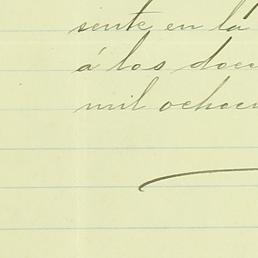 sente en la
á los doce
mil ochoci